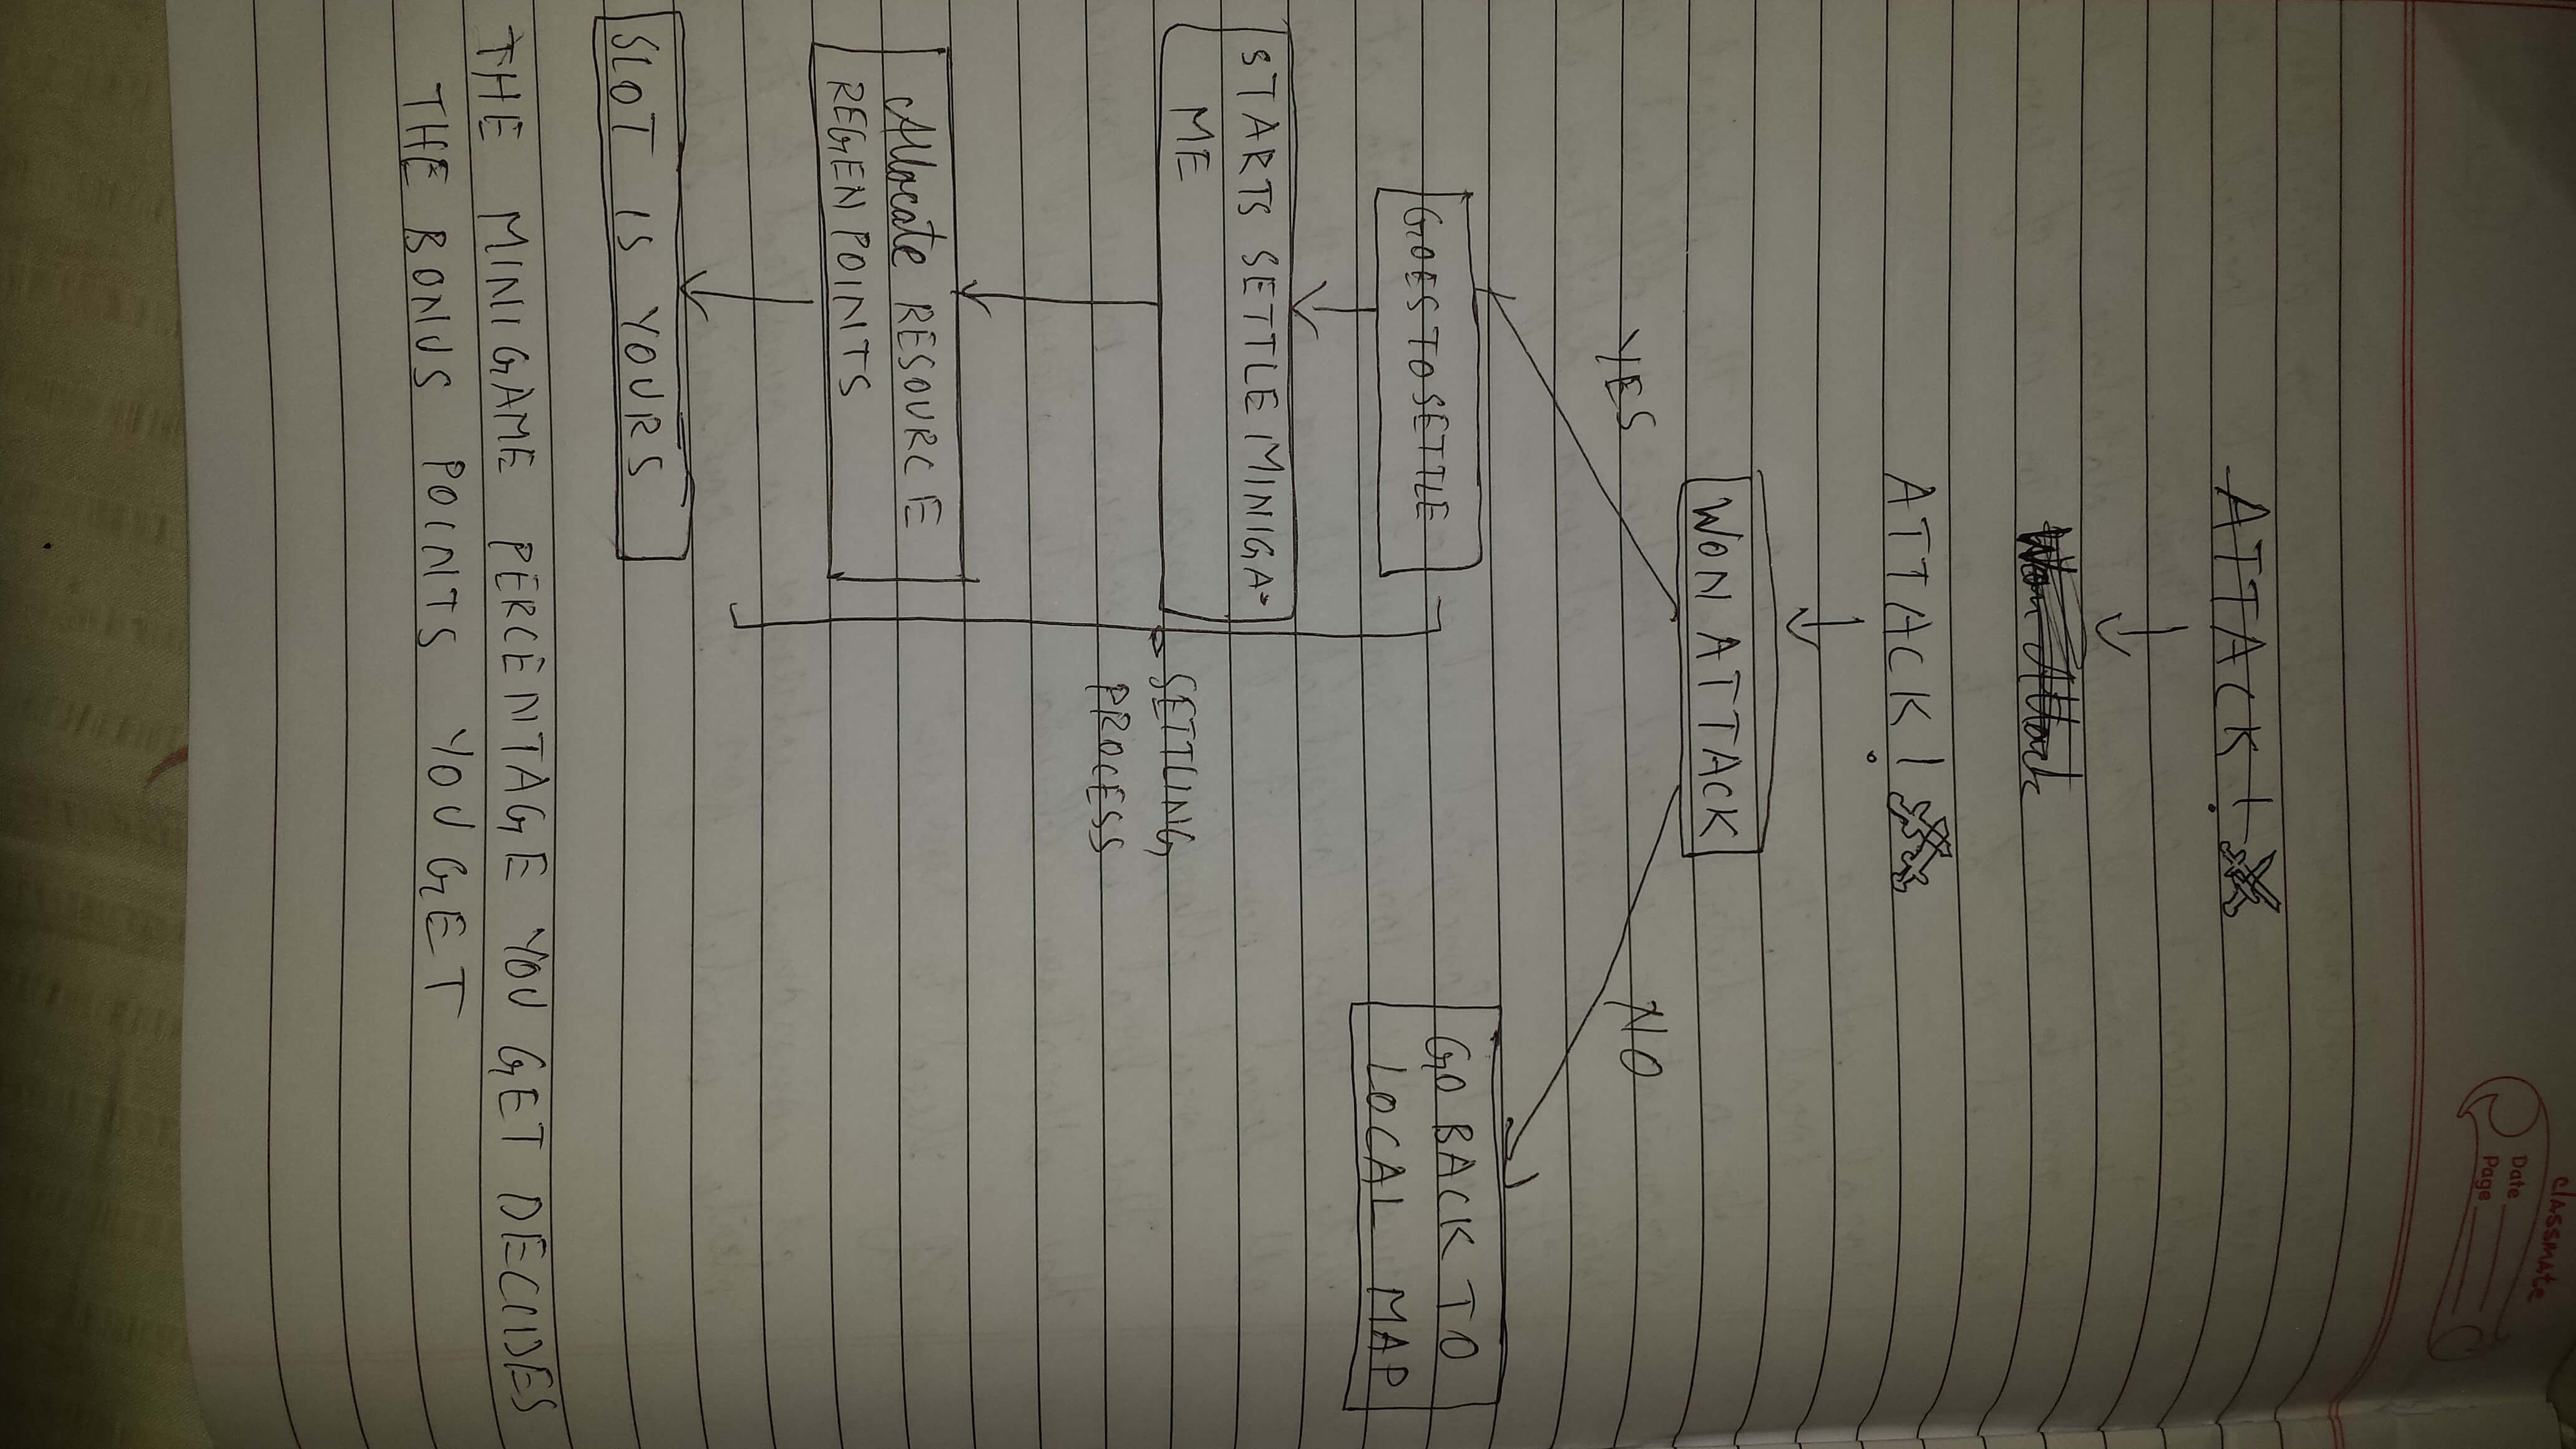 classmate
Date
Page
ATTACK!
ATTACK!
WON ATTACK
YES
NO
GOES TO SETTLE
GO BACK TO
LOCAL MAP
STARTS SETTLE MINIGA-
ME
SETTLING
PROCESS
Allocate RESOURCE
REGEN POINTS
SLOT IS YOURS
THE MINIGAME PERCENTAGE YOU GET DECIDES
THE BONUS POINTS YOU GET